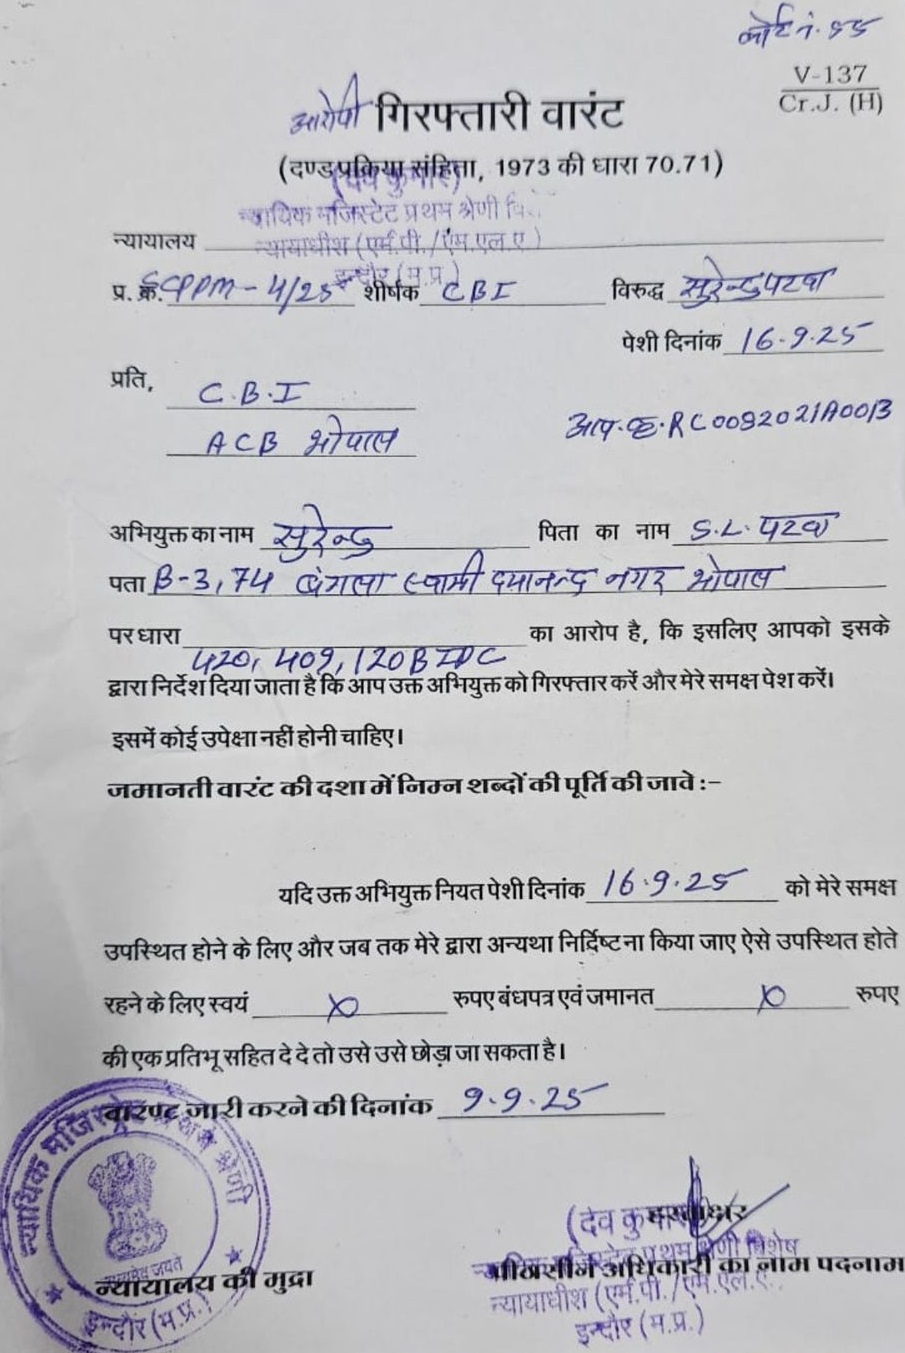 कोर्ट नं. 55
V-137
Cr.J. (H)
आरोपी गिरफ्तारी वारंट
(दण्ड प्रक्रिया संहिता, 1973 की धारा 70.71)
(देव कुमार)
न्यायिक मजिस्टेट प्रथम श्रेणी
न्यायालय न्यायाधीश (एम.पी./एम.एल.ए)
इन्दौर (म.प्र.)
प्र. क्र. PPM-4/25 शीर्षक CBI विरुद्ध सुरेन्द्र पटवा
पेशी दिनांक 16.9.25
प्रति,
C.B.I
ACB भोपाल
अप.क्र. RC0082021A0013
अभियुक्त का नाम सुरेन्द्र पिता का नाम S.L. पटवा
पता B-3, 74 बंगला स्वामी दयानन्द नगर भोपाल
पर धारा 420, 409, 120B IPC का आरोप है, कि इसलिए आपको इसके
द्वारा निर्देश दिया जाता है कि आप उक्त अभियुक्त को गिरफ्तार करें और मेरे समक्ष पेश करें।
इसमें कोई उपेक्षा नहीं होनी चाहिए।
जमानती वारंट की दशा में निम्न शब्दों की पूर्ति की जावे :-
यदि उक्त अभियुक्त नियत पेशी दिनांक 16.9.25 को मेरे समक्ष
उपस्थित होने के लिए और जब तक मेरे द्वारा अन्यथा निर्दिष्ट ना किया जाए ऐसे उपस्थित होते
रहने के लिए स्वयं X रुपए बंधपत्र एवं जमानत X रुपए
की एक प्रतिभू सहित दे दे तो उसे उसे छोड़ा जा सकता है।
वारण्ट जारी करने की दिनांक 9.9.25
न्यायिक मजिस्ट्रेट प्रथम श्रेणी
सत्यमेव जयते
इन्दौर (म.प्र.)
न्यायालय की मुद्रा
हस्ताक्षर
(देव कुमार)
पीठासीन अधिकारी का नाम पदनाम
न्यायिक मजिस्टेट प्रथम श्रेणी विशेष
न्यायाधीश (एम.पी./एम.एल.ए.
इन्दौर (म.प्र.)